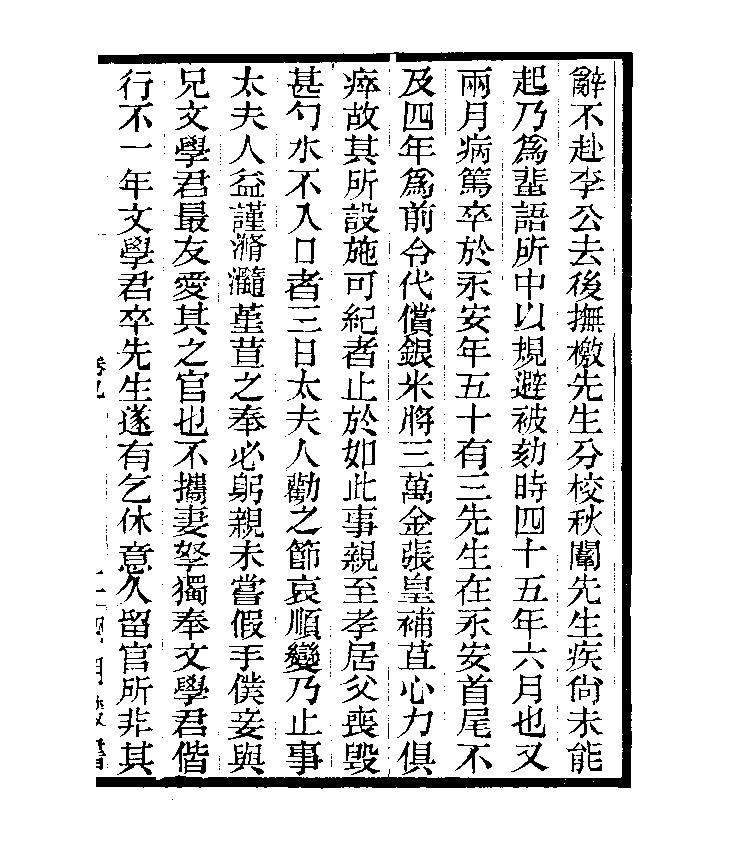 辭不赴李公去後撫檄先生分校秋闈先生疾尙未能
起乃爲蜚語所中以規避被劾時四十五年六月也又
兩月病篤卒於永安年五十有三先生在永安首尾不
及四年爲前令代償銀米將三萬金張皇補苴心力俱
瘁故其所設施可紀者止於如此事親至孝居父喪毀
甚勺水不入口者三日太夫人勸之節哀順變乃止事
太夫人益謹滫瀡堇荁之奉必躬親未嘗假手僕妾與
兄文學君最友愛其之官也不攜妻孥獨奉文學君偕
行不一年文學君卒先生遂有乞休意久留官所非其
卷九
四明叢書